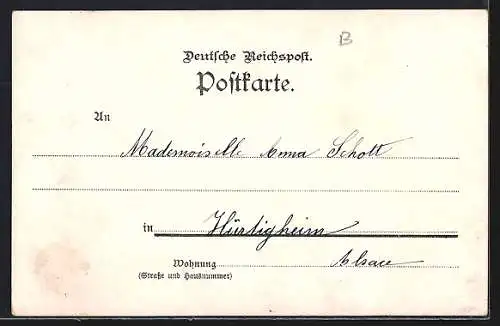 B
Deutsche Reichspost.
Postkarte.
An
Mademoiselle Anna Schott
in Hürtigheim
Wohnung Alsace
(Straße und Hausnummer)